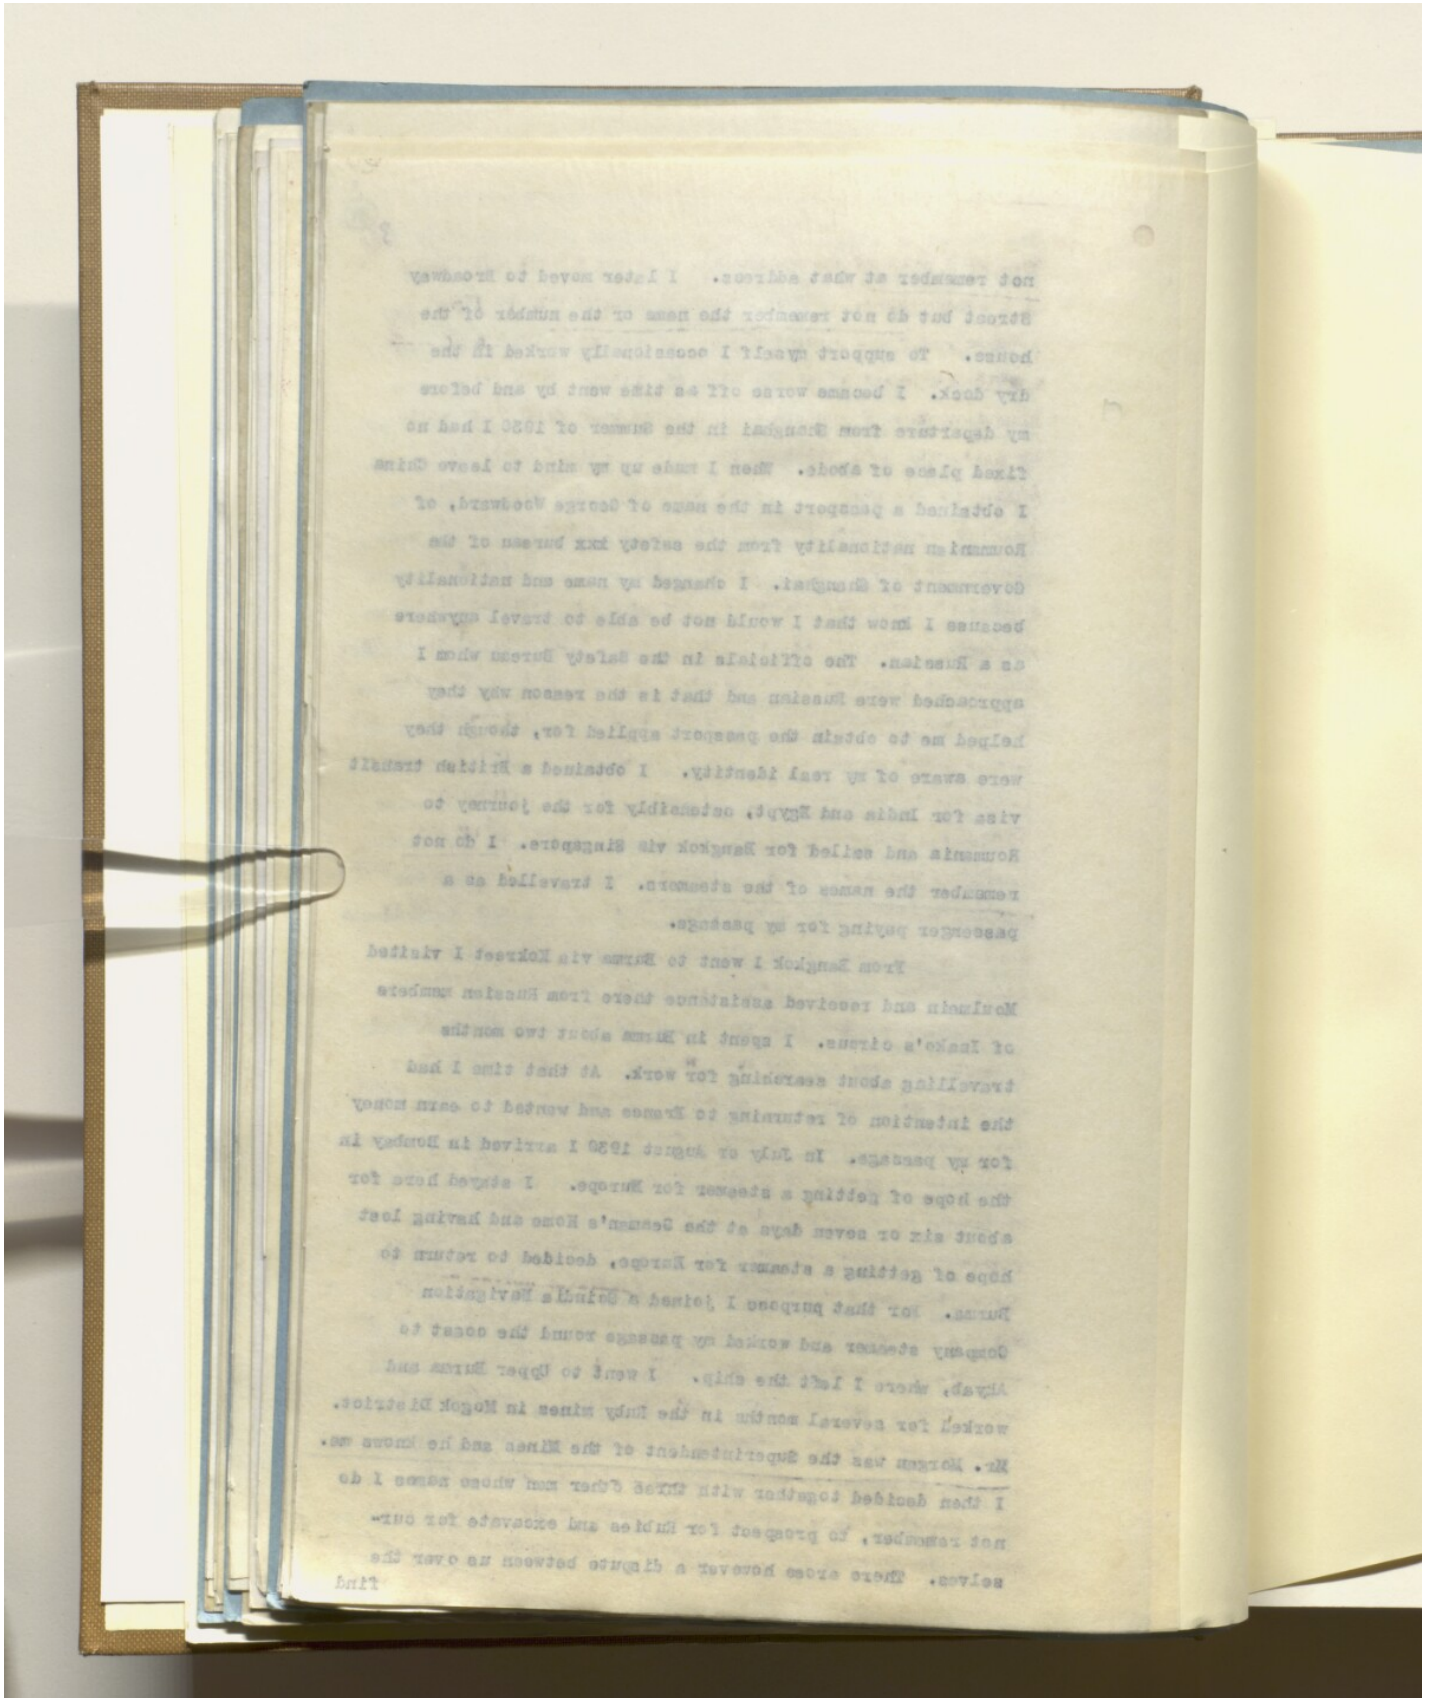 3
not remember at what address. I later moved to Broadway
Street but do not remember the name or the number of the
house. To support myself I occasionally worked in the
dry dock. I became worse off as time went by and before
my departure from Shanghai in the Summer of 1930 I had no
fixed place of abode. When I made up my mind to leave China
I obtained a passport in the name of George Woodward, of
Roumanian nationality from the safety ixx bureau of the
Government of Shanghai. I changed my name and nationality
because I knew that I would not be able to travel anywhere
as a Russian. The officials in the Safety Bureau whom I
approached were Russian and that is the reason why they
helped me to obtain the passport applied for, though they
were aware of my real identity. I obtained a British transit
visa for India and Egypt, ostensibly for the journey to
Roumania and sailed for Bangkok via Singapore. I do not
remember the names of the steamers. I travelled as a
passenger paying for my passage.
From Bangkok I went to Burma via Kokraet I visited
Moulmein and received assistance there from Russian members
of Isako's circus. I spent in Burma about two months
travelling about searching for work. At that time I had
the intention of returning to France and wanted to earn money
for my passage. In July or August 1930 I arrived in Bombay in
the hope of getting a steamer for Europe. I stayed here for
about six or seven days at the Seamen's Home and having lost
hope of getting a steamer for Europe, decided to return to
Burma. For that purpose I joined a Scindia Navigation
Company steamer and worked my passage round the coast to
Akyab, where I left the ship. I went to Upper Burma and
worked for several months in the Ruby mines in Mogok District.
Mr. Morgan was the Superintendent of the Mines and he knows me.
I then decided together with three other men whose names I do
not remember, to prospect for Rubies and excavate for our-
selves. There arose however a dispute between us over the
find